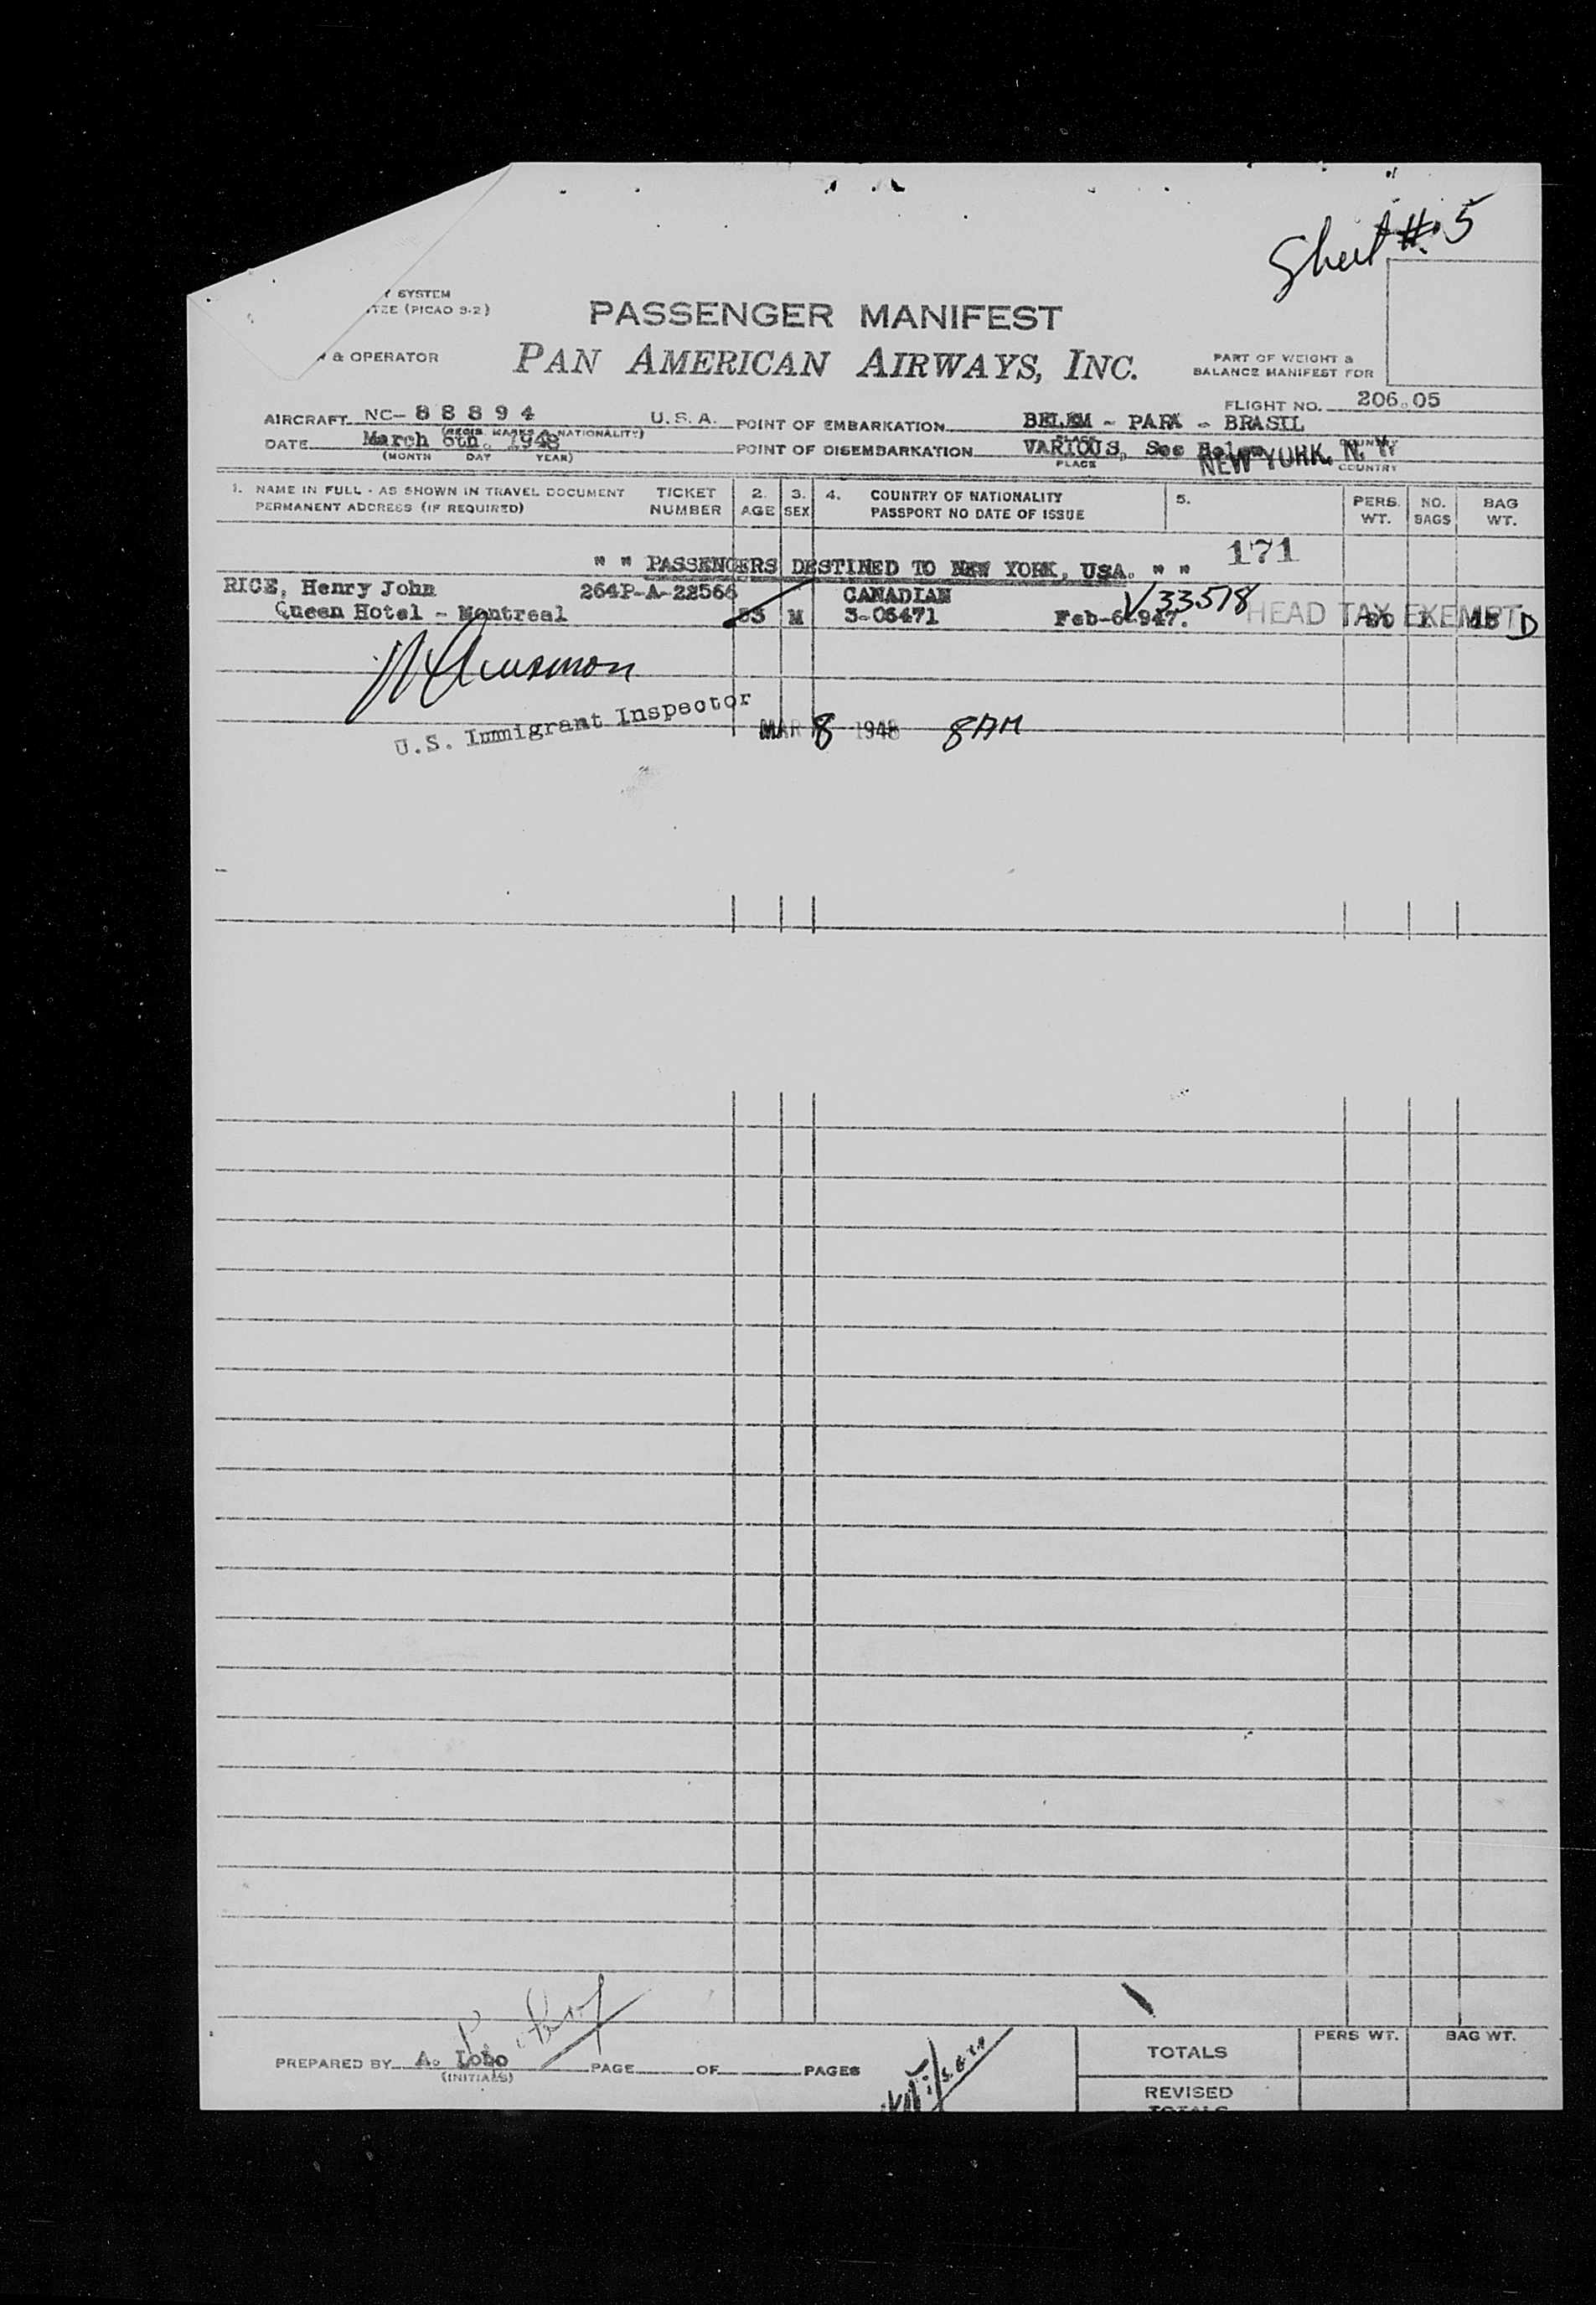 Sheet #5
Y SYSTEM
TEE (PICAO 9-2)
PASSENGER MANIFEST
& OPERATOR
PAN AMERICAN AIRWAYS, INC.
PART OF WEIGHT &
BALANCE MANIFEST FOR
FLIGHT NO. 206.05
AIRCRAFT NC-88894 U.S.A. POINT OF EMBARKATION BELEM - PARA - BRASIL
(REGIS. MARKS & NATIONALITY) PLACE COUNTRY
DATE March 6th. 1948 POINT OF DISEMBARKATION VARIOUS, See Below NEW YORK, N. Y.
(MONTH DAY YEAR) PLACE COUNTRY
1. NAME IN FULL - AS SHOWN IN TRAVEL DOCUMENT TICKET 2. 3. 4. COUNTRY OF NATIONALITY 5. PERS. NO. BAG
PERMANENT ADDRESS (IF REQUIRED) NUMBER AGE SEX PASSPORT NO DATE OF ISSUE WT. BAGS WT.
" " PASSENGERS DESTINED TO NEW YORK, USA. " " 171
RICE, Henry John 264P-A-22566 CANADIAN V33578
Queen Hotel - Montreal 53 M 3-06471 Feb-6-947. HEAD TAX EXEMPT 1 D
U.S. Immigrant Inspector
MAR 8 1948 8AM
PREPARED BY A. Lobo PAGE OF PAGES
(INITIALS)
TOTALS PERS WT. BAG WT.
REVISED
TOTALS